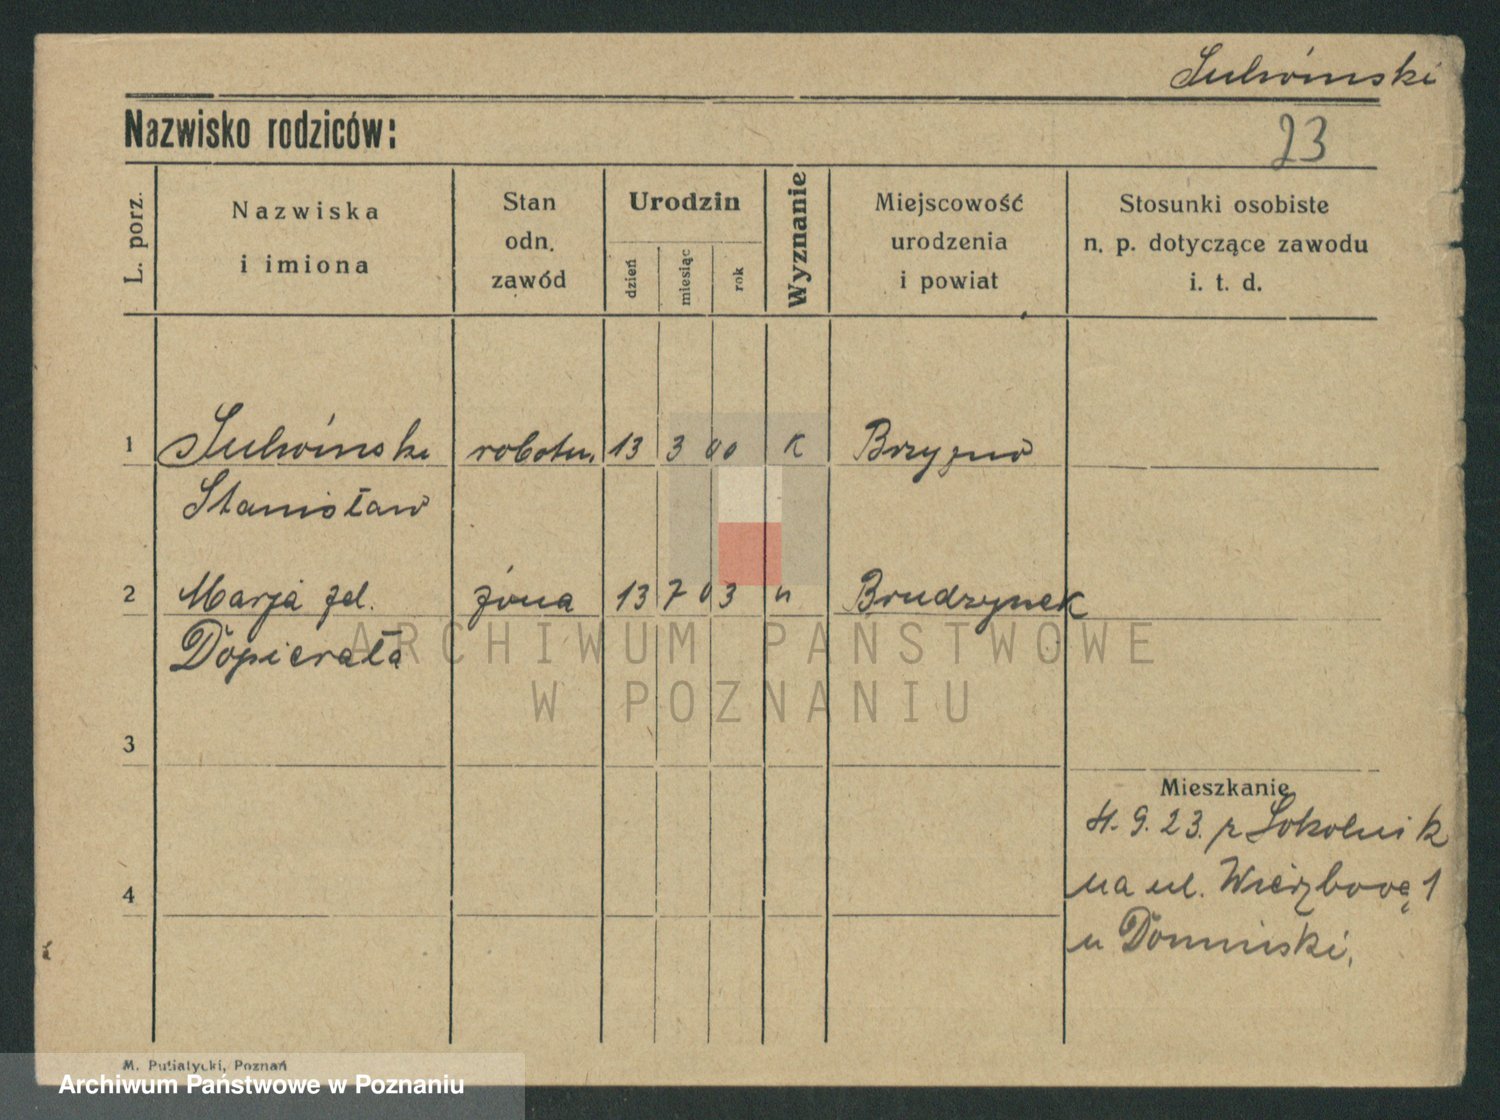 Sulwinski
Nazwisko rodziców:
23
L. porz.
Nazwiska
i imiona
Stan
odn.
zawód
Urodzin
dzień
miesiąc
rok
Wyznanie
Miejscowość
urodzenia
i powiat
Stosunki osobiste
n. p. dotyczące zawodu
i. t. d.
1 Sulwinski robotn. 13 3 00 K
Stanisław
2 Marja zd. żona 13 7 03 " Brudzynek
Dopierała
3
Mieszkanie
4. 9. 23. z Sokolnik
4 na ul. Wierzbową 1
u Dominski.
M. Putiatycki, Poznań
ARCHIWUM PAŃSTWOWE
W POZNANIU
Archiwum Państwowe w Poznaniu